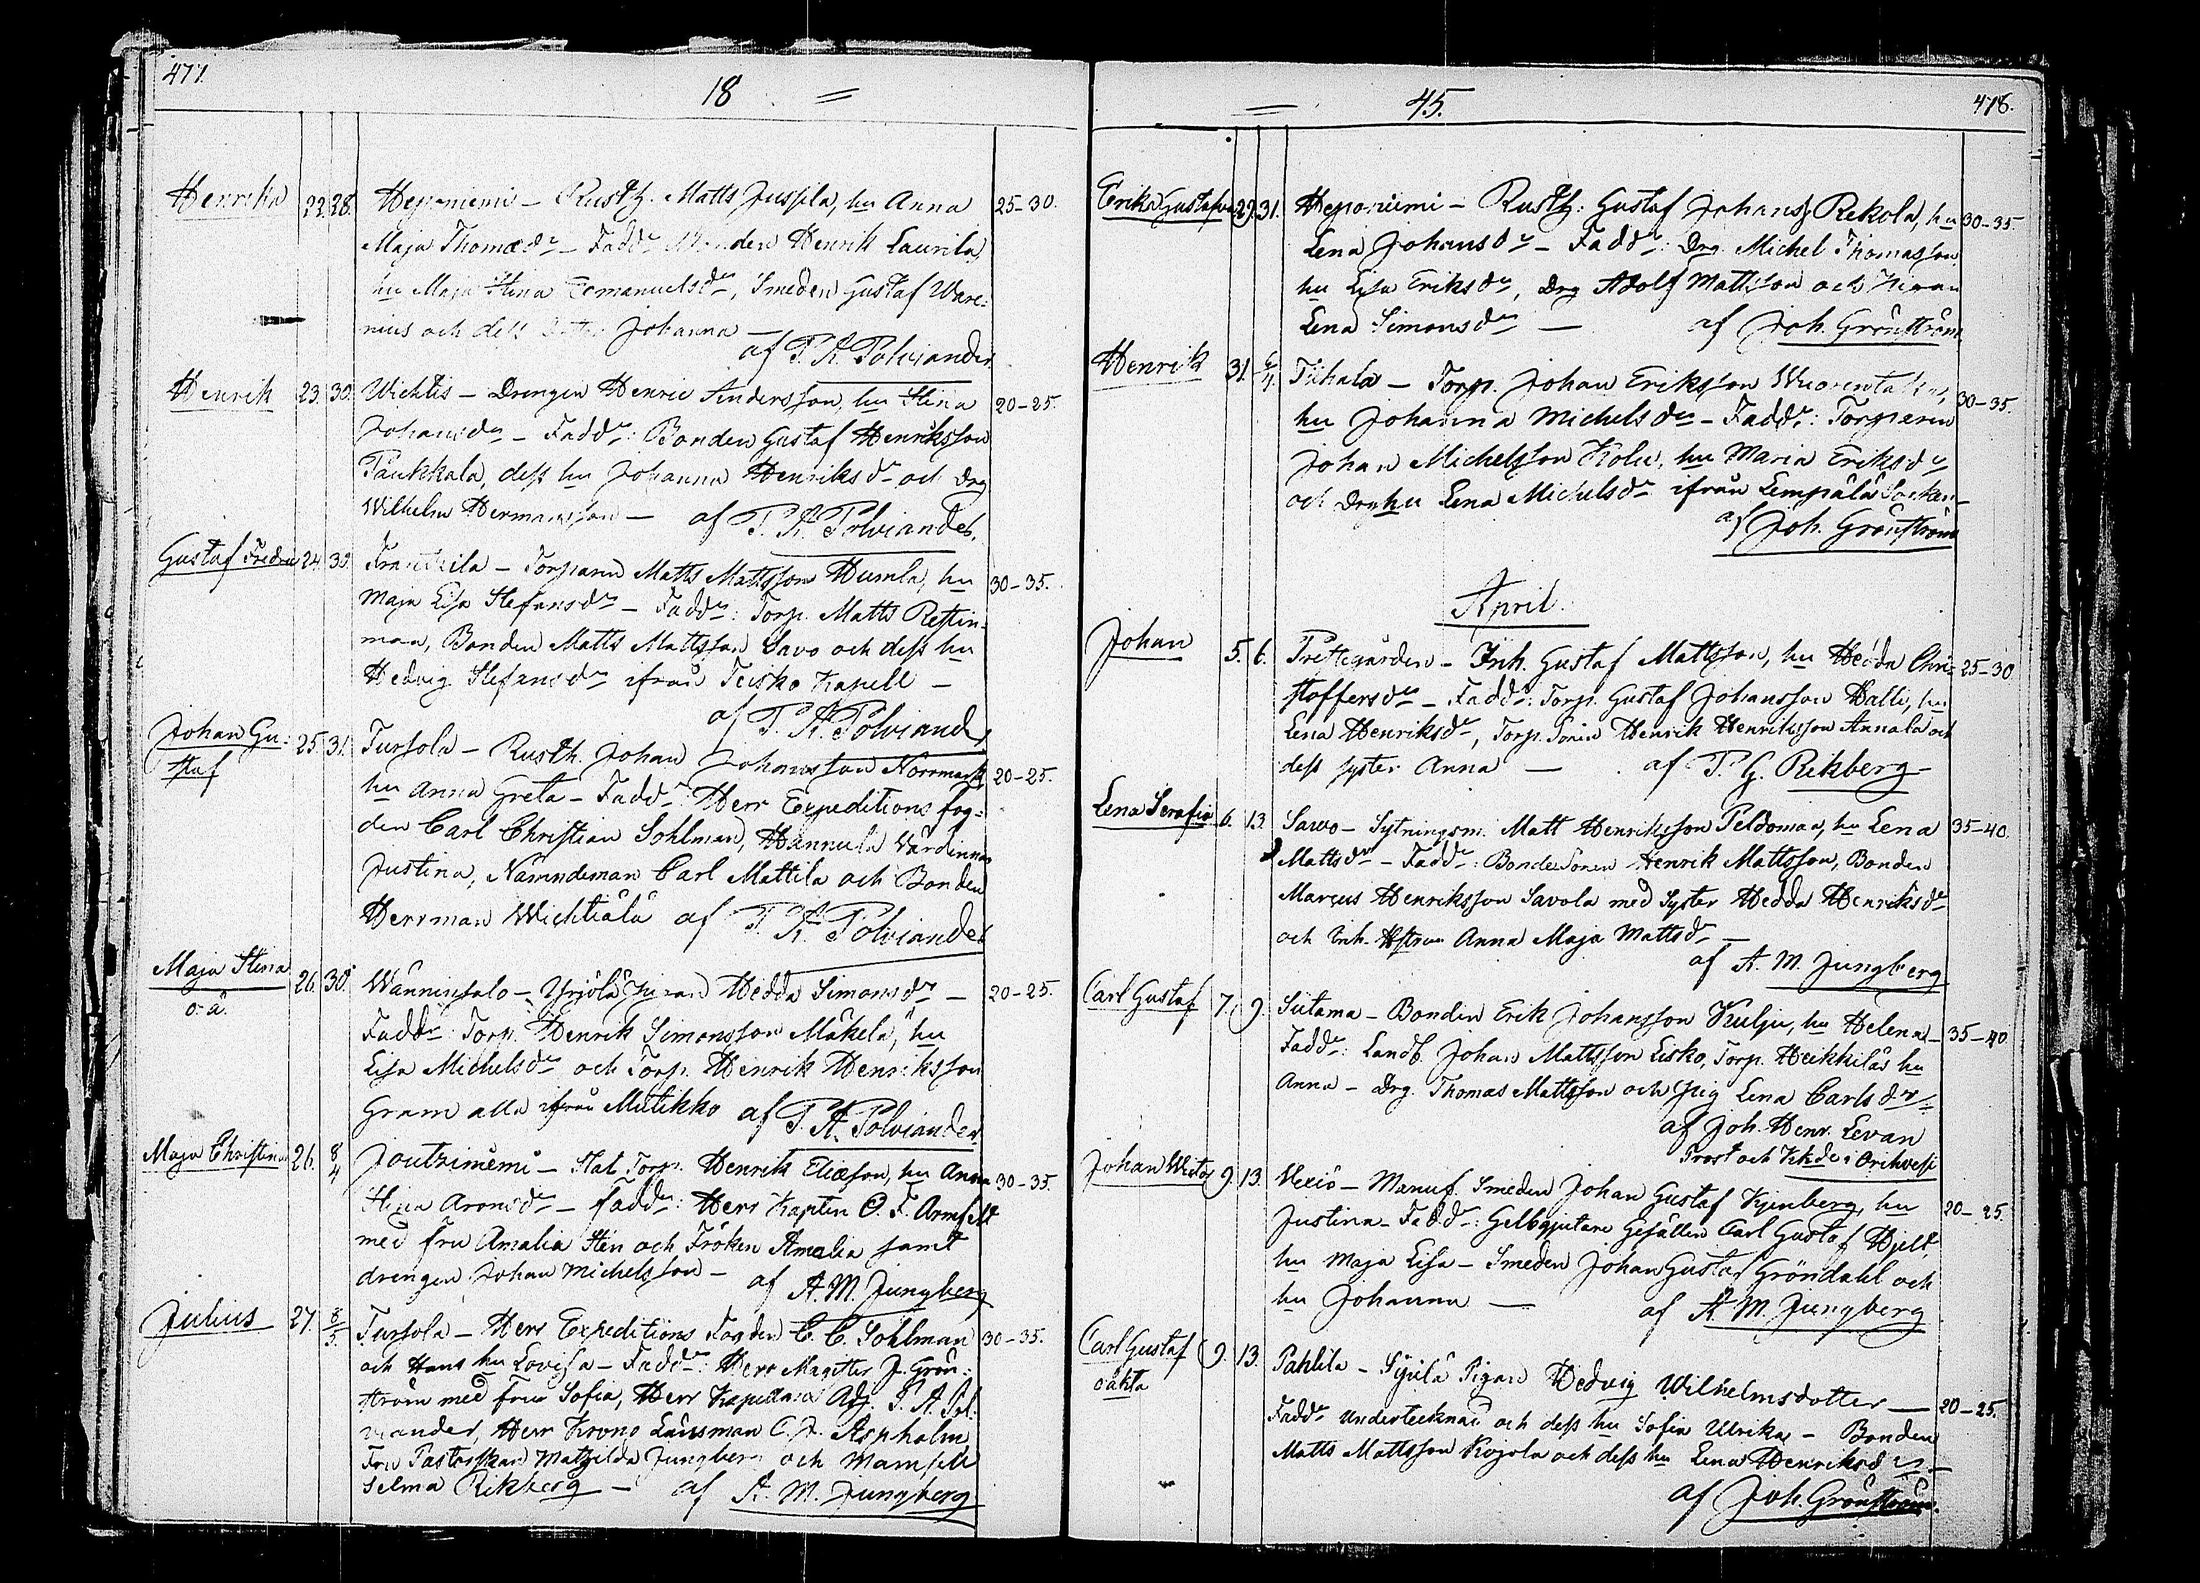 477.
18 =
Henrika 22. 28. Heponiemi – Rusth. Matts Jussila, hu Anna 25–30.
Maja Thomædr – Faddr Bonden Henrik Laurila,
hu Maja Stina Emanuelsdr, Smeden Gustaf Ware-
nius och dess Johanna –
af P. A. Polviander.
Henrik 23. 30. Wichtis – Drengen Henric Andersson, hu Stina 20–25.
Johansdr – Faddr: Bonden Gustaf Henriksson
Paukkala, dess hu Johanna Henriksdr och Drg
Wilhelm Hermansson – af P. A. Polviander.
Gustaf Fredric 24. 30. Frantsila – Torparen Matts Mattsson Humla, hu 30–35.
Maja Lisa Stefansdr – Faddr: Torp. Matts Restin-
maa, Bonden Matts Mattsson Savo och dess hu
Hedvig Stefansdr ifrån Teisko Kapell –
af P. A. Polviander
Johan Gu- 25. 31. Tursola – Rusth. Johan Johansson Norrmark, 20–25.
staf hu Anna Greta – Faddr: Herr Expeditions fog-
den Carl Christian Sohlman, Hannula Värdinnan
Justina, Nämndeman Carl Mattila och Bonden
Herrman Wichtiälä af P. A. Polviander
Maja Stina 26. 30. Wänninsalo – Yrjölä Pigan Hedda Simonsdr – 20–25.
o. ä. Faddr: Torp. Henrik Simonsson Mäkelä, hu
Lisa Michelsdr och Torp. Henrik Henriksson
Gram alla ifrån Mutikko af P. A. Polviander
Maja Christina 26. 8/4 Joutsiniemi – Stat Torp. Henrik Eliæson, hu Anna 30–35.
Stina Aronsdr – Faddr: Herr Kapten O. F. Armfelt
med fru Amalia Sten och Fröken Amalia samt
drengen Johan Michelsson – af A. M. Jungberg
Julius 27. 8/5. Tursola – Herr Expeditions Fogden C. C. Sohlman 30–35.
och Hans hu Lovisa – Faddr: Herr Magister J. Grön-
ström med Fru Sofia, Herr Kapellans Adj. P. A. Pol-
viander, Herr Krono Länsman C. A. Aspholm
Fru Pastorskan Mathilda Jungberg och Mamsell
Selma Rikberg – af A. M. Jungberg
= 45. 478.
Erika Gustafva 29. 31. Heponiemi – Rusth: Gustaf Johanss. Rekola, hu 30–35.
Lena Johansdr – Faddr: Drg Michel Thomasson
hu Lisa Eriksdr, Drg Adolf Mattsson och Pigan
Lena Simonsdr – af Joh. Grönström
Henrik 31. 6/4. Tiihala – Torp. Johan Eriksson Wuorenta 30–35.
hu Johanna Michelsdr – Faddr: Torparen
Johan Michelsson Kolu, hu Maria Eriksdr
och Drg hu Lena Michelsdr ifrån Lempälä Socken –
af Joh. Grönström
April.
Johan 5. 6. Prestegården – Inh. Gustaf Mattsson, hu Hedda Chri- 25–30
stoffersdr – Faddr: Torp. Gustaf Johansson Halli, hu
Lena Henriksdr, Torp. Sonen Henrik Henriksson Annala och
dess syster Anna – af P. G. Rikberg
Lena Serafia 6. 13. Sawo – Sytningsm. Matt Henriksson Peldomaa, hu Lena 35–40.
Mattsdr – Faddr: Bonde Sonen Henrik Mattsson, Bonden
Marcus Henriksson Savola med Syster Hedda Henriksdr
och Inh. Hstrun Anna Maja Mattsdr –
af A. M. Jungberg
Carl Gustaf 7. 9. Siitama – Bonden Erik Johansson Kulju, hu Helena – 35–40
Faddr: Landb. Johan Mattsson Eisko, Torp. Heikkiläs hu
Anna – Drg. Thomas Mattsson och Pig Lena Carlsdr –
af Joh. Henr. Levan
Prost och Kkde i Orihvesi
Johan Victor 9. 13. Vexiö – Manuf. Smeden Johan Gustaf Kjenberg, hu 20–25.
Justina – Faddr: Gelbgjutare Gesällen Carl Gustaf Hjelt
hu Maja Lisa – Smeden Johan Gustaf Gröndahl och
hu Johanna – af A. M. Jungberg
Carl Gustaf 9. 13. Pahlila – Sipilä Pigan Hedvig Wilhelmsdotter – 20–25.
oäkta Faddr Undertecknad och dess hu Sofia Ulrika – Bonden
Matts Mattsson Kojola och dess hu Lena Henriksdr –
af Joh. Grönström.